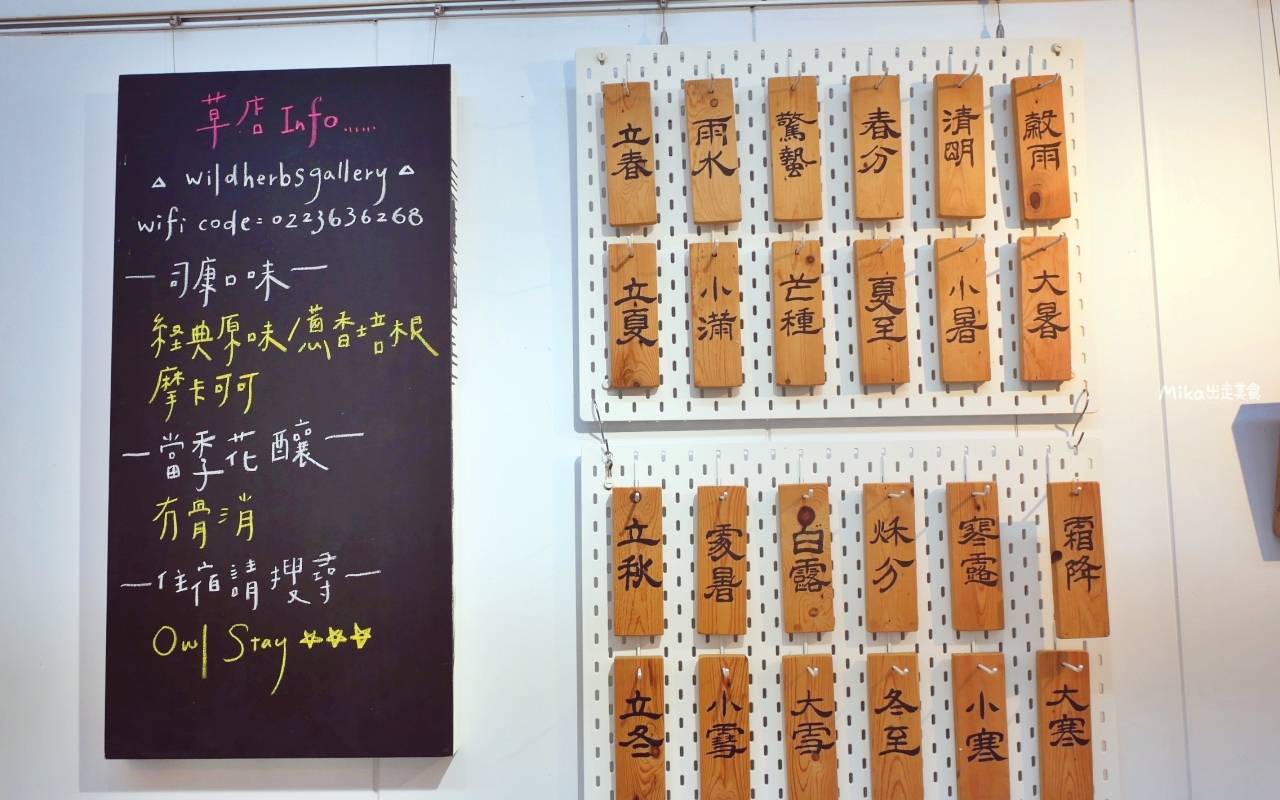 草店 Info......
△ wildherbsgallery △
wifi code=0223636268
—司康口味—
経典原味/蔥香培根
摩卡可可
—當季花釀—
冇骨消
—住宿請搜尋—
Owl Stay
立春 雨水 驚蟄 春分 清明 穀雨
立夏 小滿 芒種 夏至 小暑 大暑
立秋 處暑 白露 秌分 寒露 霜降
立冬 小雪 大雪 冬至 小寒 大寒
Mika出走美食